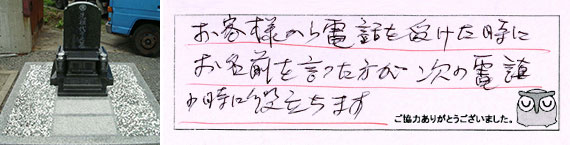 お客様から電話を受けた時に
お名前を言った方が次の電話
の時に役立ちます
ご協力ありがとうございました。